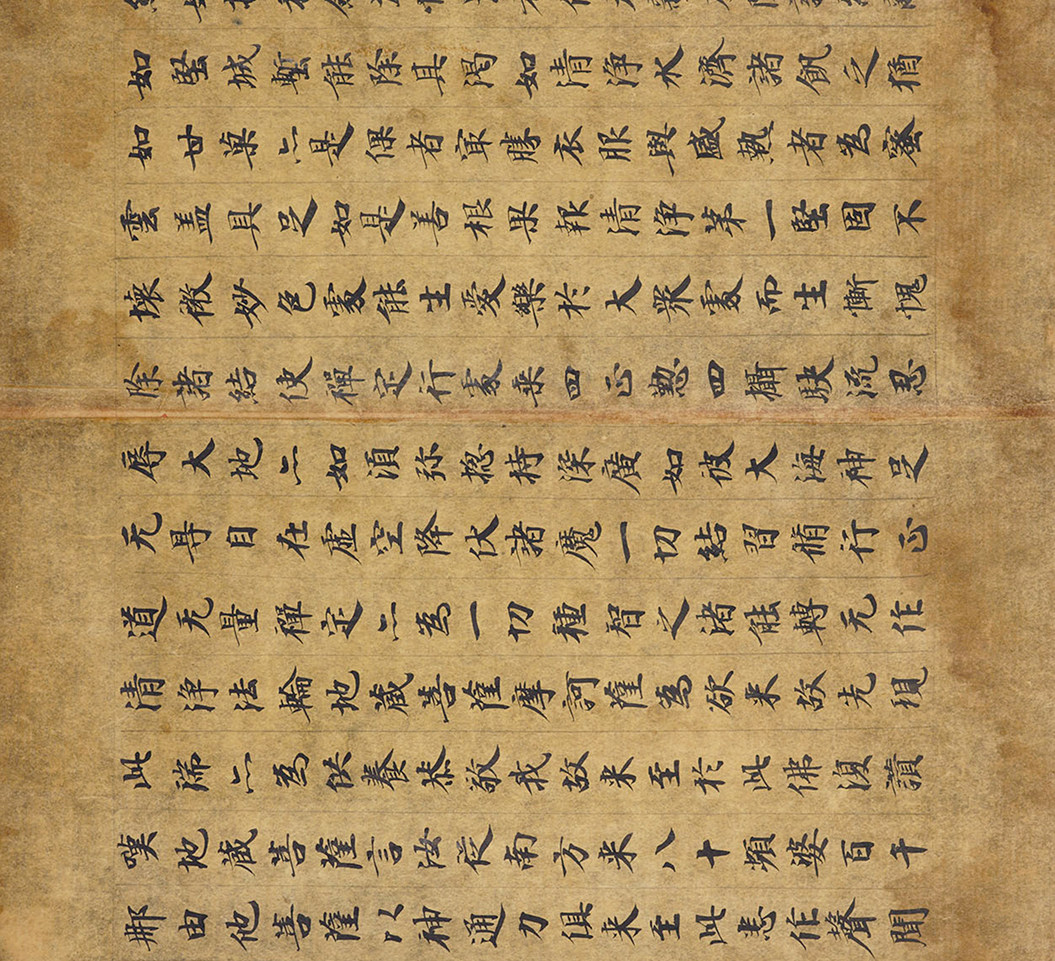 如堅城塹能除其渴如清淨水濟諸飢之猶
如甘菓亦是倮者㝡勝衣服與盛熱者為蜜
雲盖具足如是善根果報清淨第一堅固不
壞微妙色處能生愛樂於大眾處而生慚愧
除諸結使禪定行處乗四正懃四攝駃流忍
辱大地亦如湏弥揔持深廣如彼大海神足
无㝵自在虛空降伏諸魔一切結習脩行正
道无量禪定亦為一切種智之渚能轉无作
清淨法輪地蔵菩薩摩訶薩為欲来故先現
此瑞亦為供養恭敬我故来至於此佛復讚
嘆地蔵菩薩言汝從南方来八十頻婆百千
那由他菩薩以神通力俱来至此悉作聲聞